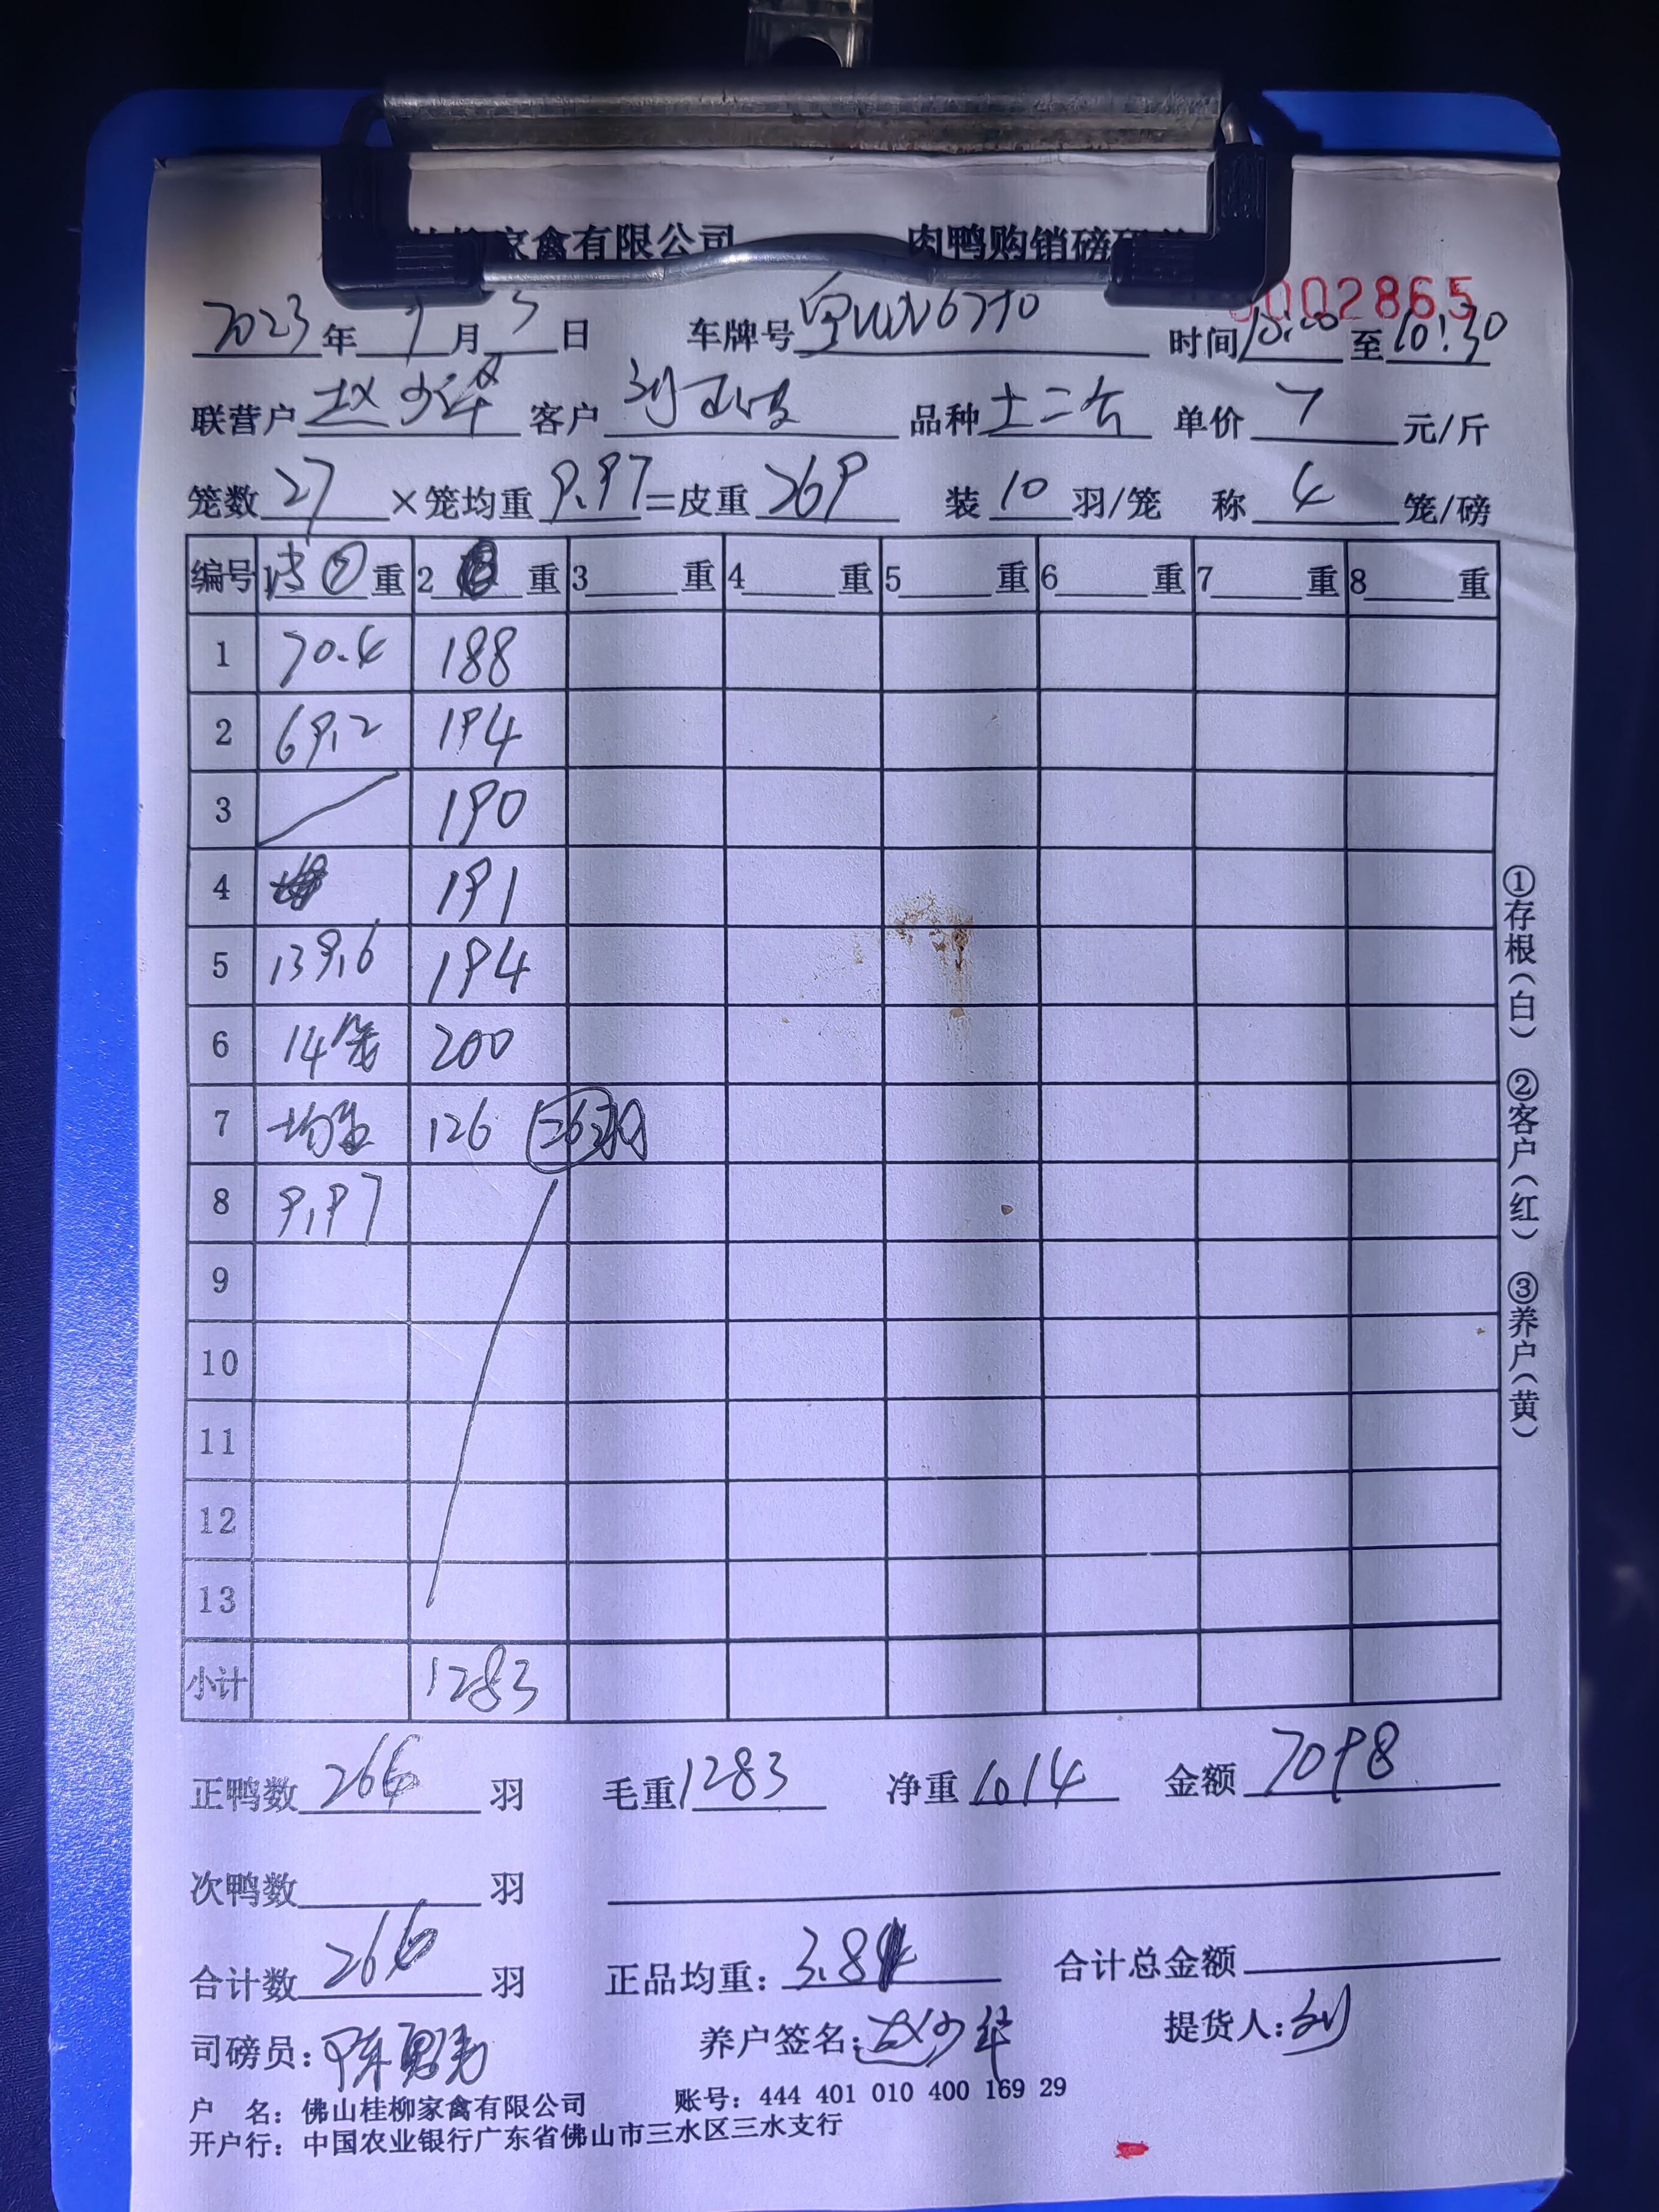 家禽有限公司 肉鸭购销磅
002865
2023年9月3日 车牌号 6770 时间10:20至10:30
联营户赵少华 客户刘 品种土二六 单价7元/斤
笼数27×笼均重9.97=皮重269 装10羽/笼 称4笼/磅
编号 ⑦重 2 重 3 重 4 重 5 重 6 重 7 重 8 重
1 70.4 188
2 69.2 194
3 190
4 191
5 139.6 194
6 14笼 200
7 均重 126
8 9.97
9
10
11
12
13
小计 1283
正鸭数266羽 毛重1283 净重1014 金额7098
次鸭数 羽
合计数266羽 正品均重:3.81 合计总金额
司磅员:陈 养户签名:赵少华 提货人:刘
户 名:佛山桂柳家禽有限公司 账号:444 401 010 400 169 29
开户行:中国农业银行广东省佛山市三水区三水支行
①存根(白) ②客户(红) ③养户(黄)